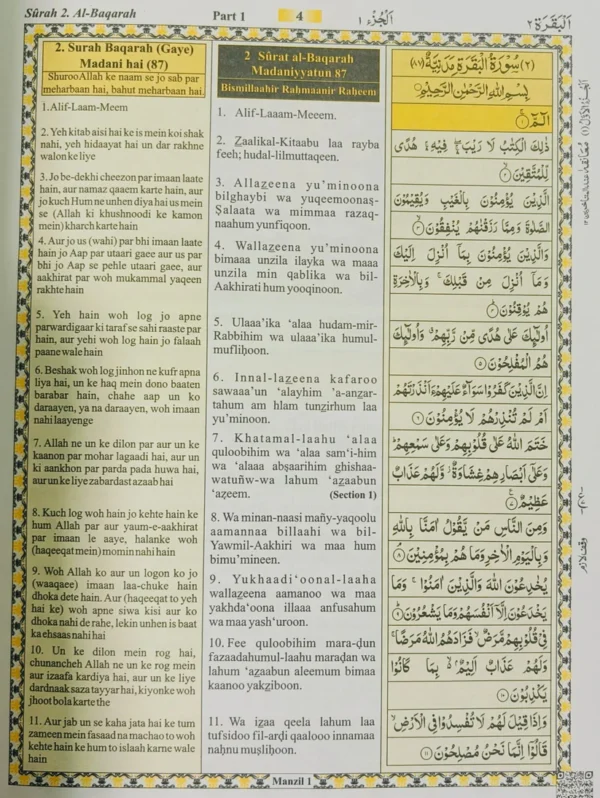 Sûrah 2. Al-Baqarah
Part 1
4
اَلْجُزْء ١
اَلْبَقَرَة ٢
2. Surah Baqarah (Gaye)
Madani hai (87)
ShurooAllah ke naam se jo sab par
meharbaan hai, bahut meharbaan hai.
1.Alif-Laam-Meem
2. Yeh kitab aisi hai ke is mein koi shak
nahi, yeh hidaayat hai un dar rakhne
walon ke liye
3. Jo be-dekhi cheezon par imaan laate
hain, aur namaz qaaem karte hain, aur
jo kuch Hum ne unhen diya hai us mein
se (Allah ki khushnoodi ke kamon
mein) kharch karte hain
4. Aur jo us (wahi) par bhi imaan laate
hain jo Aap par utaari gaee aur us par
bhi jo Aap se pehle utaari gaee, aur
aakhirat par woh mukammal yaqeen
rakhte hain
5. Yeh hain woh log jo apne
parwardigaar ki taraf se sahi raaste par
hain, aur yehi woh log hain jo falaah
paane wale hain
6. Beshak woh log jinhon ne kufr apna
liya hai, un ke haq mein dono baaten
barabar hain, chahe aap un ko
daraayen, ya na daraayen, woh imaan
nahi laayenge
7. Allah ne un ke dilon par aur un ke
kaanon par mohar lagaadi hai, aur un
ki aankhon par parda pada huwa hai,
aur un ke liye zabardast azaab hai
8. Kuch log woh hain jo kehte hain ke
hum Allah par aur yaum-e-aakhirat
par imaan le aaye, halanke woh
(haqeeqat mein) momin nahi hain
9. Woh Allah ko aur un logon ko jo
(waaqaee) imaan laa-chuke hain
dhoka dete hain. Aur (haqeeqat to yeh
hai ke) woh apne siwa kisi aur ko
dhoka nahi de rahe, lekin unhen is baat
ka ehsaas nahi hai
10. Un ke dilon mein rog hai,
chunancheh Allah ne un ke rog mein
aur izaafa kardiya hai, aur un ke liye
dardnaak saza tayyar hai, kiyonke woh
jhoot bola karte the
11. Aur jab un se kaha jata hai ke tum
zameen mein fasaad na machao to woh
kehte hain ke hum to islaah karne wale
hain
2 Sûrat al-Baqarah
Madaniyyatun 87
Bismillaahir Rahmaanir Raheem
1. Alif-Laaam-Meeem.
2. Z̲aalikal-Kitaabu laa rayba
feeh; hudal-lilmuttaqeen.
3. Allaz̲eena yu'minoona
bilghaybi wa yuqeemoonaṣ-
Ṣalaata wa mimmaa razaq-
naahum yunfiqoon.
4. Wallaz̲eena yu'minoona
bimaaa unzila ilayka wa maaa
unzila min qablika wa bil-
Aakhirati hum yooqinoon.
5. Ulaaa'ika 'alaa hudam-mir-
Rabbihim wa ulaaa'ika humul-
mufliḥoon.
6. Innal-laz̲eena kafaroo
sawaaa'un 'alayhim 'a-anz̲ar-
tahum am hlam tunz̲irhum laa
yu'minoon.
7. Khatamal-laahu 'alaa
quloobihim wa 'alaa sam'i-him
wa 'alaaa abṣaarihim ghishaa-
watuñw-wa lahum 'az̲aabun
'aẓeem. (Section 1)
8. Wa minan-naasi mañy-yaqoolu
aamannaa billaahi wa bil-
Yawmil-Aakhiri wa maa hum
bimu'mineen.
9. Yukhaadi'oonal-laaha
wallaz̲eena aamanoo wa maa
yakhda'oona illaaa anfusahum
wa maa yash'uroon.
10. Fee quloobihim mara-ḍun
fazaadahumul-laahu maraḍan wa
lahum 'az̲aabun aleemum bimaa
kaanoo yakz̲iboon.
11. Wa iz̲aa qeela lahum laa
tufsidoo fil-arḍi qaalooo innamaa
naḥnu muṣliḥoon.
(٢) سُوْرَةُ الْبَقَرَةِ مَدَنِيَّةٌ (٨٧)
بِسْمِ اللّٰهِ الرَّحْمٰنِ الرَّحِيْمِ
الٓمّٓ ۚ
ذٰلِكَ الْكِتٰبُ لَا رَيْبَ ۛ فِيْهِ ۛ هُدًى
لِّلْمُتَّقِيْنَ ۙ
الَّذِيْنَ يُؤْمِنُوْنَ بِالْغَيْبِ وَيُقِيْمُوْنَ
الصَّلٰوةَ وَمِمَّا رَزَقْنٰهُمْ يُنْفِقُوْنَ ۙ
وَالَّذِيْنَ يُؤْمِنُوْنَ بِمَآ اُنْزِلَ اِلَيْكَ
وَمَآ اُنْزِلَ مِنْ قَبْلِكَ ۚ وَبِالْاٰخِرَةِ
هُمْ يُوْقِنُوْنَ ؕ
اُولٰٓئِكَ عَلٰى هُدًى مِّنْ رَّبِّهِمْ ۗ وَاُولٰٓئِكَ
هُمُ الْمُفْلِحُوْنَ ۵
اِنَّ الَّذِيْنَ كَفَرُوْا سَوَآءٌ عَلَيْهِمْ ءَاَنْذَرْتَهُمْ
اَمْ لَمْ تُنْذِرْهُمْ لَا يُؤْمِنُوْنَ ٦
خَتَمَ اللّٰهُ عَلٰى قُلُوْبِهِمْ وَعَلٰى سَمْعِهِمْ ؕ
وَعَلٰٓى اَبْصَارِهِمْ غِشَاوَةٌ ۫ وَّلَهُمْ عَذَابٌ
عَظِيْمٌ ٧
وَمِنَ النَّاسِ مَنْ يَّقُوْلُ اٰمَنَّا بِاللّٰهِ
وَبِالْيَوْمِ الْاٰخِرِ وَمَا هُمْ بِمُؤْمِنِيْنَ ۘ ٨
يُخٰدِعُوْنَ اللّٰهَ وَالَّذِيْنَ اٰمَنُوْا ۚ وَمَا
يَخْدَعُوْنَ اِلَّآ اَنْفُسَهُمْ وَمَا يَشْعُرُوْنَ ؕ ٩
فِيْ قُلُوْبِهِمْ مَّرَضٌ ۙ فَزَادَهُمُ اللّٰهُ مَرَضًا ۚ
وَلَهُمْ عَذَابٌ اَلِيْمٌ ۢ ۙ بِمَا كَانُوْا
يَكْذِبُوْنَ ١٠
وَاِذَا قِيْلَ لَهُمْ لَا تُفْسِدُوْا فِي الْاَرْضِ ۙ
قَالُوْٓا اِنَّمَا نَحْنُ مُصْلِحُوْنَ ١١
وقف لازم
Manzil 1